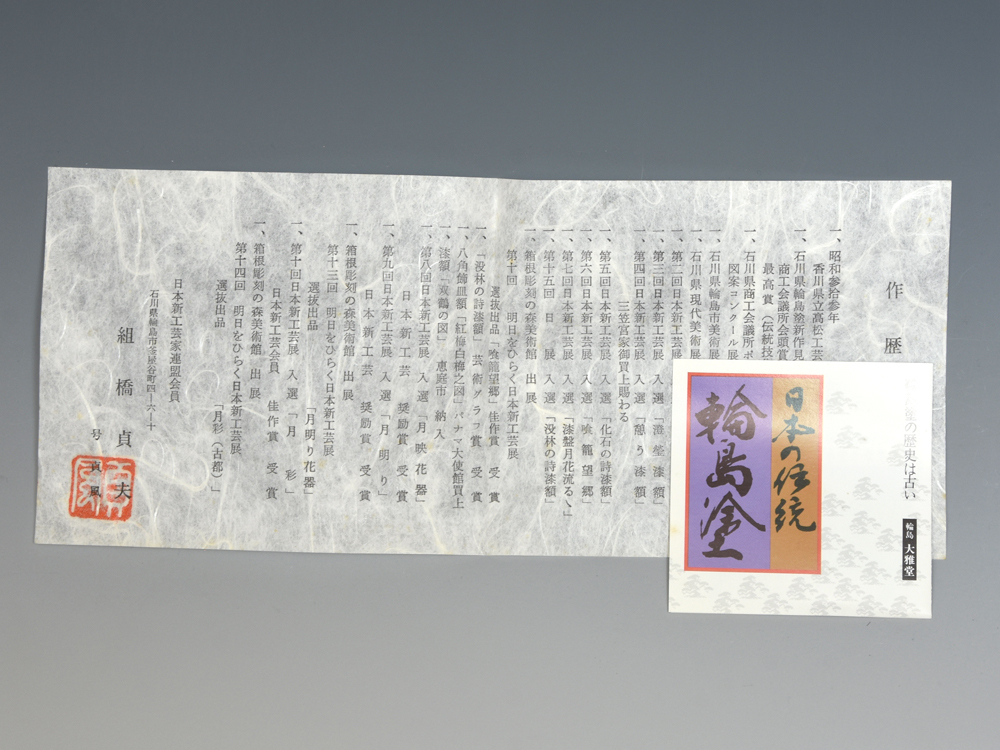 作歴
一、昭和参拾参年
香川県立高松工芸
一、石川県輪島塗新作見
商工会議所会頭賞
最高賞（伝統技
一、石川県商工会議所ポ
図案コンクール展
一、石川県輪島市美術展
一、石川県現代美術展
一、第二回日本新工芸
一、第三回日本新工芸展 入選
一、第四回日本新工芸展 入選「憩う漆額」
三笠宮家御買上賜わる
一、第五回日本新工芸展 入選「化石の詩漆額」
一、第六回日本新工芸展 入選「喰籠望郷」
一、第七回日本新工芸展 入選「漆盤月花流る丶」
一、第十五回 日展 入選「没林の詩漆額」
一、箱根彫刻の森美術館 出展
第十回 明日をひらく日本新工芸展
選抜出品「喰籠望郷」佳作賞 受賞
一、「没林の詩漆額」芸術グラフ賞 受賞
一、八角飾皿額「紅梅白梅之図」パナマ大使館買上
一、漆額「双鶴の図」恵庭市 納入
一、第八回日本新工芸展 入選「月映花器」
日本新工芸 奨励賞 受賞
一、第九回日本新工芸展 入選「月明り」
日本新工芸 奨励賞 受賞
一、箱根彫刻の森美術館 出展
第十三回 明日をひらく日本新工芸展
選抜出品 「月明り花器」
一、第十回日本新工芸展 入選「月彩」
日本新工芸会員 佳作賞 受賞
一、箱根彫刻の森美術館 出展
第十四回 明日をひらく日本新工芸展
選抜出品 「月彩（古都）」
日本新工芸家連盟会員
石川県輪島市釜屋谷町四ー六ー十
組橋貞夫
号 貞風
の歴史は古い
輪島 大雅堂
日本の伝統
輪島塗